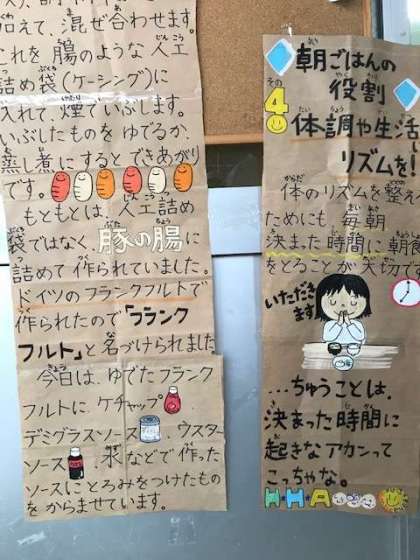 加えて、混ぜ合わせます。
これを腸のような人工
詰め袋(ケーシング)に
入れて、煙でいぶします。
いぶしたものをゆでるか、
蒸し煮にするとできあがり
です。
もともとは、人工詰め
袋ではなく豚の腸に
詰めて作られていました。
ドイツのフランクフルトで
作られたので「フランク
フルト」と名づけられました
今日は、ゆでたフランク
フルトに、ケチャップ、
デミグラスソース、ウスター
ソース、水などで作った
ソースにとろみをつけたもの
をからませています。
朝ごはんの
役割
その4
体調や生活
リズムを!
体のリズムを整え
ためにも毎朝
決まった時間に朝食
をとることが大切で
いただき
ます
…ちゅうことは、
決まった時間に
起きなアカンって
こっちゃな。
H・H・A